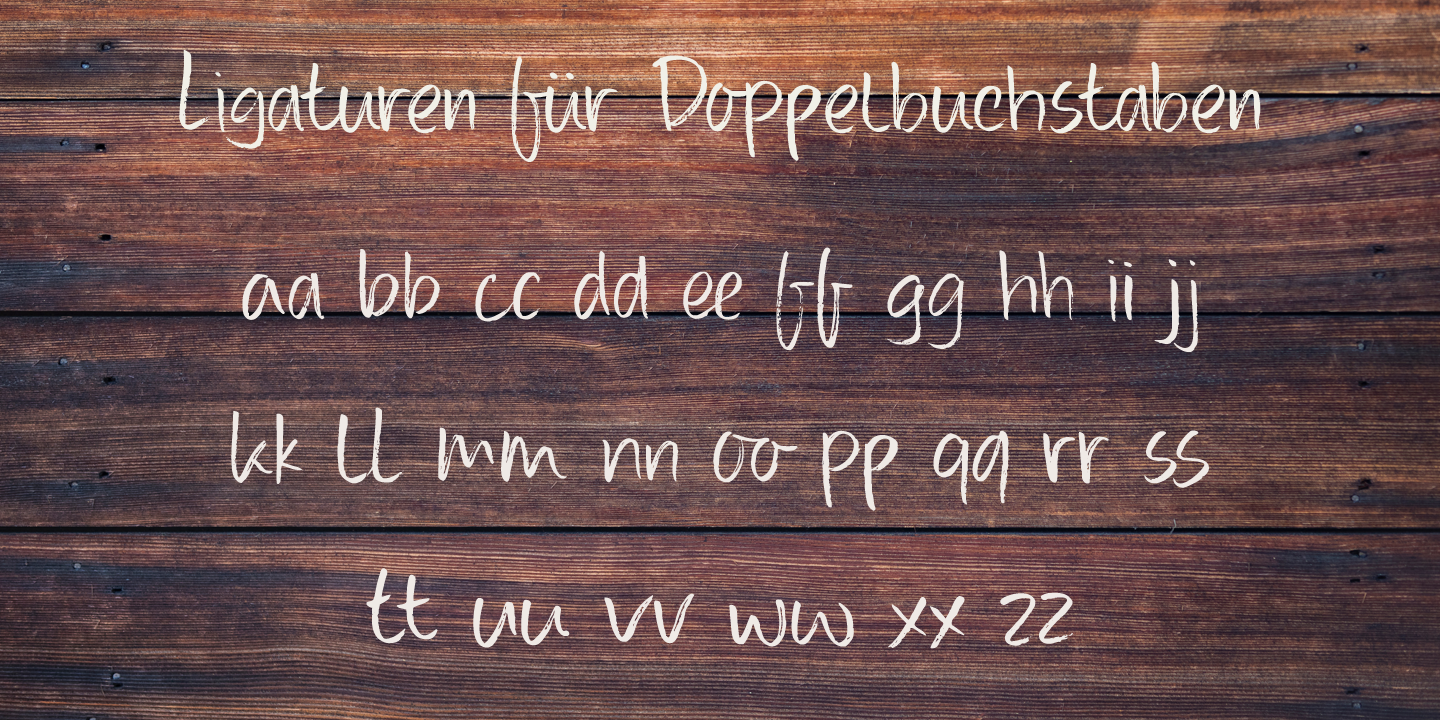 Ligaturen für Doppelbuchstaben
aa bb cc dd ee ff gg hh ii jj
kk ll mm nn oo pp qq rr ss
tt uu vv ww xx zz